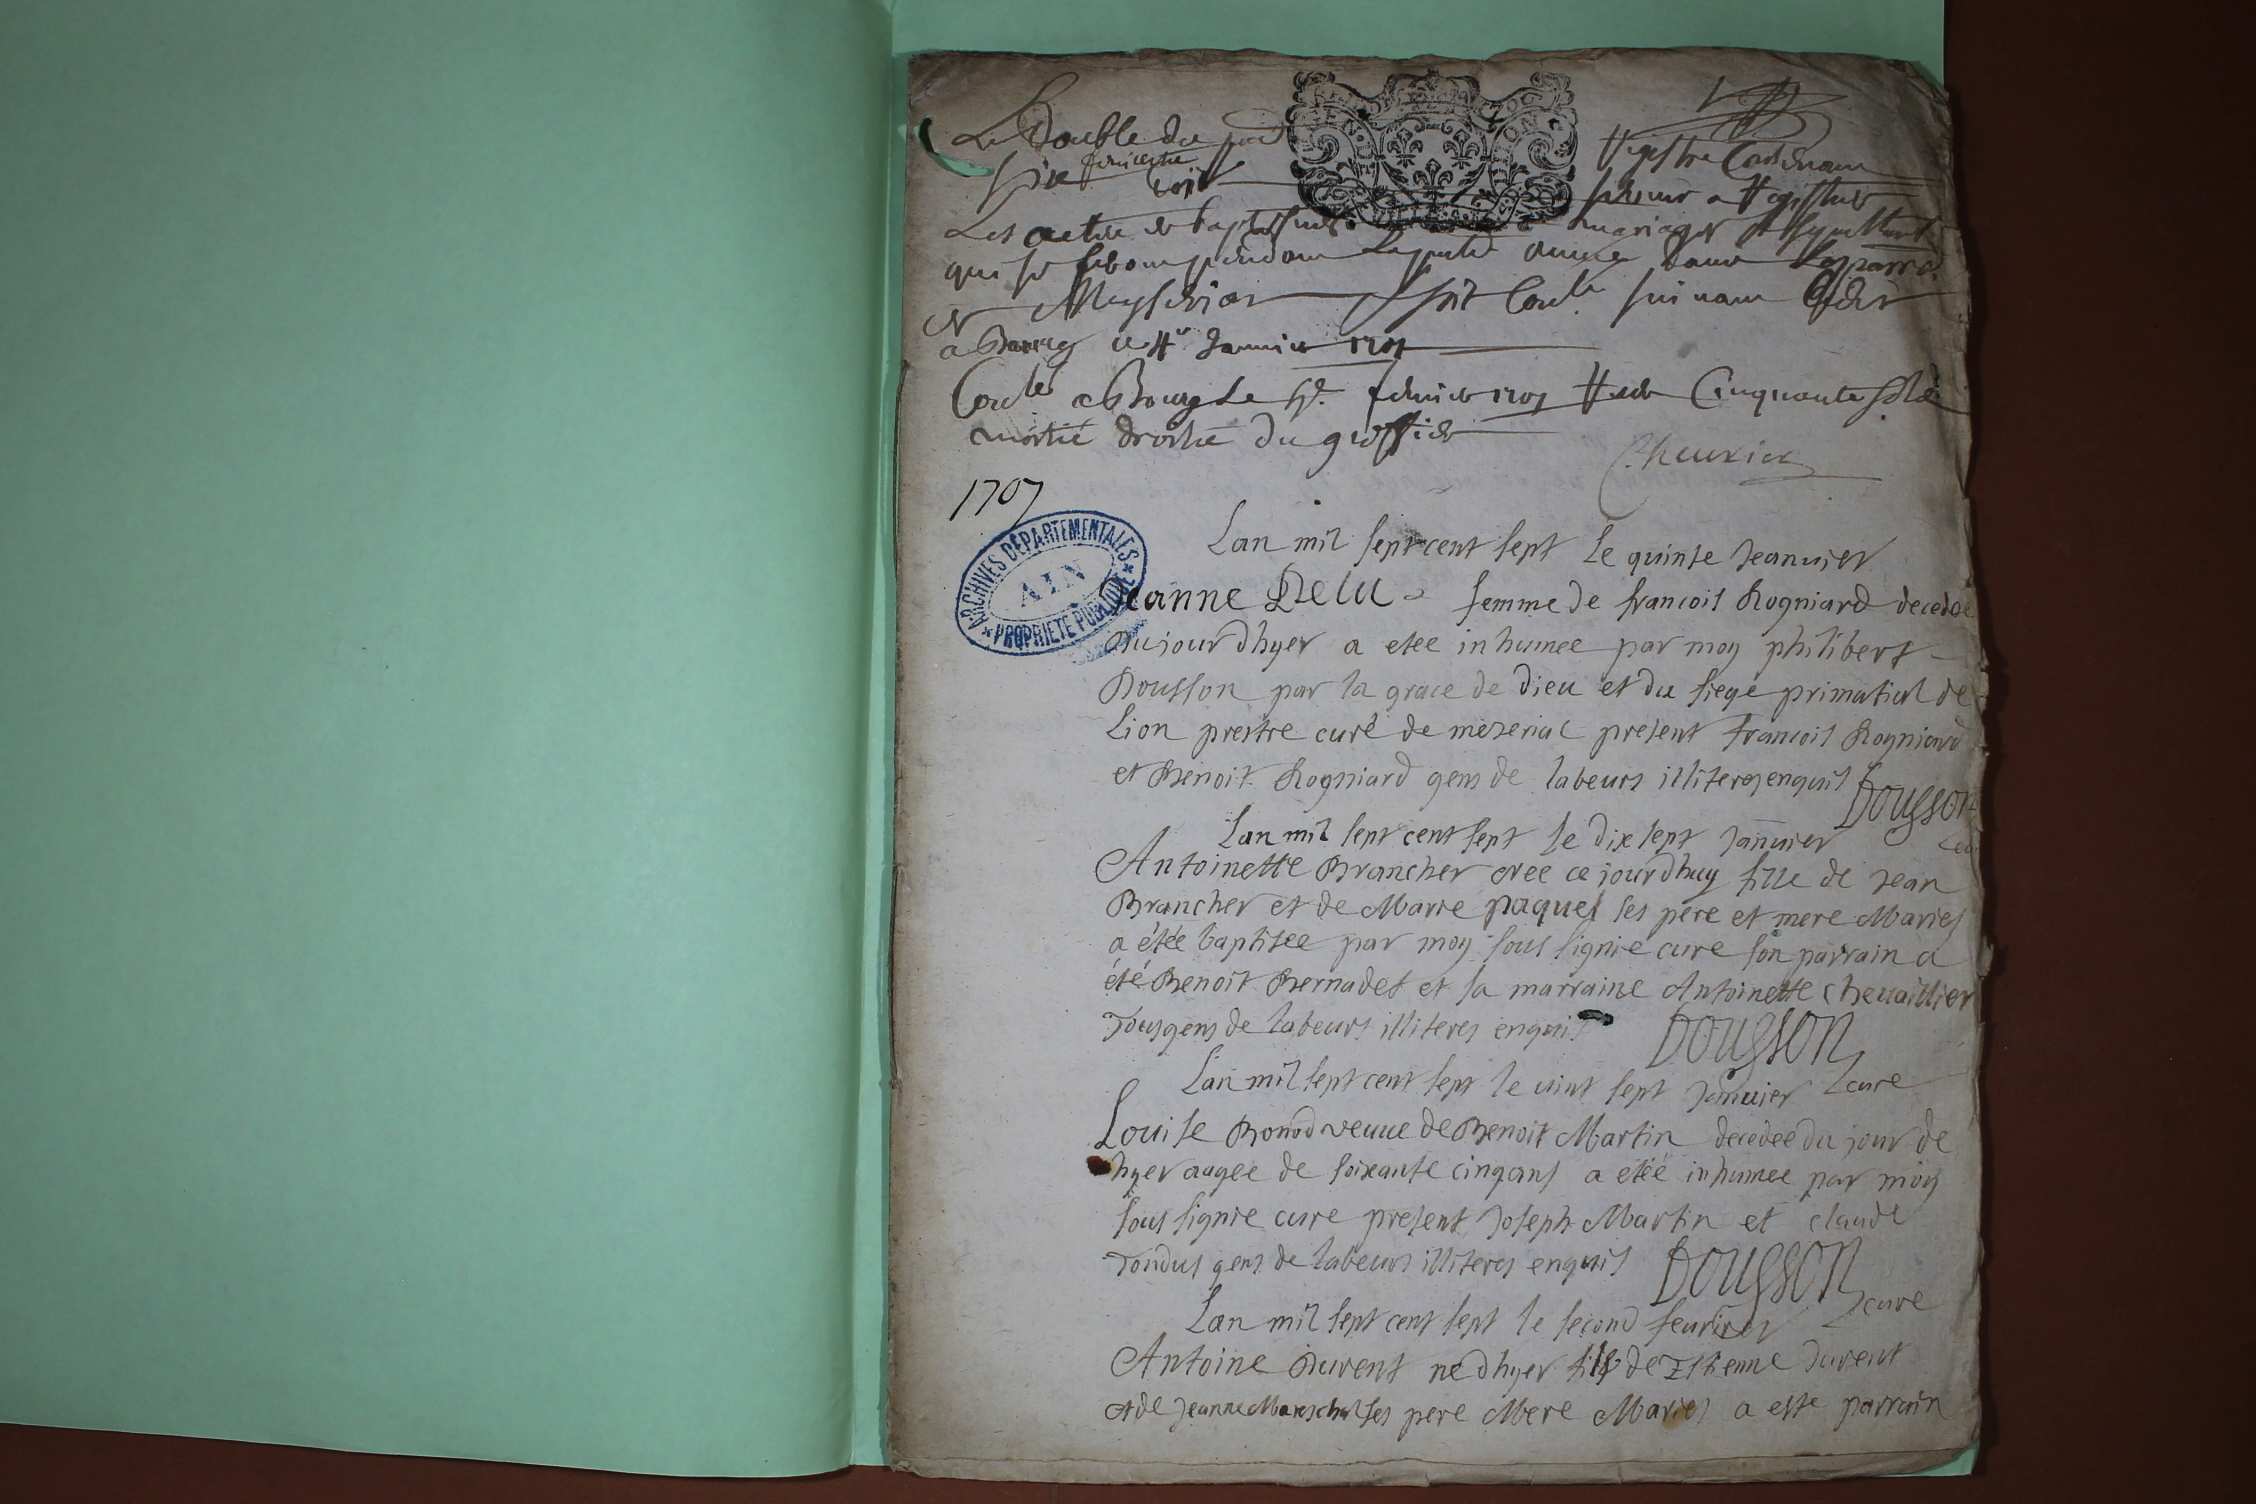 Le Double du pnt
Registre Contenant
six feuillets
servir a Registrer
Les actes de baptesmes mariages et sepultures
qui se feront pendant la pnte année dans la parroisse
de Meyseria
a Bourg ce 4e Janvier 1707
Conlé a Bourg Le febvrier 1707 Cinquante sols
moitié droitz du greffier
Cheurier
1707
ARCHIVES DÉPARTEMENTALES
AIN
PROPRIÉTÉ PUBLIQUE
Lan mil sept cent sept le quinse Jeanvier
Jeanne femme de francois Rogniard decedee
aujourdhyer a etee inhumee par moy philibert
Dousson par la grace de dieu et du siege primatial de
Lion prestre curé de meseriac present francois Rogniard
et Benoit Rogniard gens de labeurs illiteres enquis Dousson
Lan mil sept cent sept le dix sept Janvier
Antoinette Brancher nee ce jourdhuy fille de Jean
Brancher et de Marie paquet ses pere et mere Maries
a étée baptisee par moy sous signie cure son parrain a
été Benoit Bernadet et sa marraine Antoinette Chevaillier
Tous gens de labeurs illiteres enquis Dousson
cure
Lan mil sept cent sept le vint sept Janvier
Louise Bonod veuve de Benoit Martin decedee du jour de
hyer aagee de soixante cinq ans a étée inhumee par moy
sous signie cure present Joseph Martin et claude
Tondus gens de labeurs illiteres enquis Dousson
cure
Lan mil sept cent sept le second feurier
Antoine Durent né dhyer fils de Etienne durent
et de Jeanne Mareschal ses pere Mere Maries a este parrain